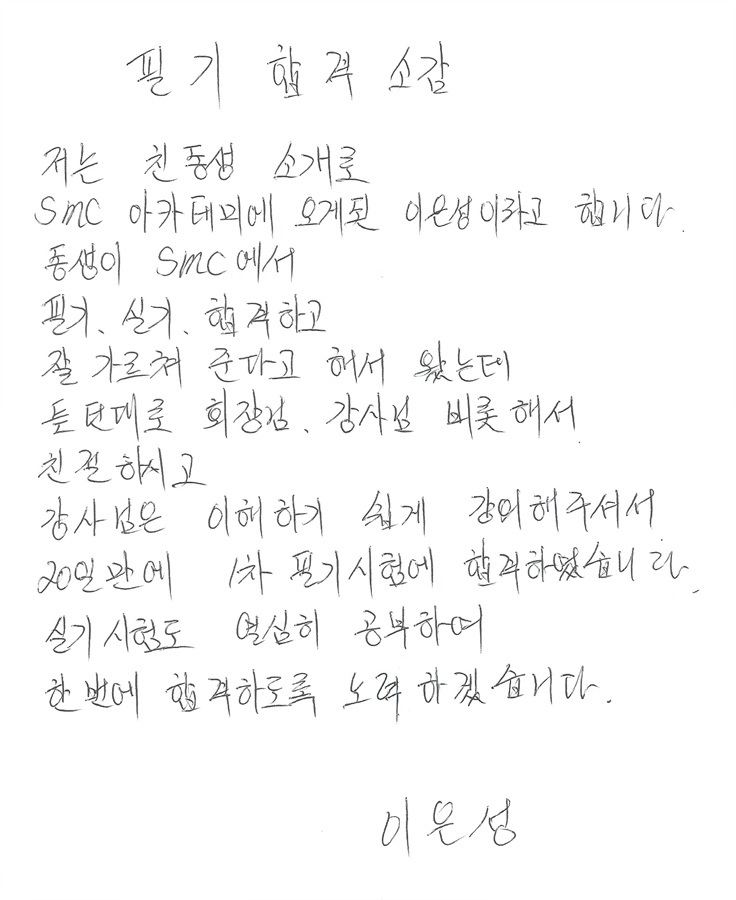 필기 합격 소감
저는 친동생 소개로
SMC 아카데미에 오게된 이은성이라고 합니다.
동생이 SMC에서
필기、실기、합격하고
잘 가르쳐 준다고 해서 왔는데
듣던대로 회장님、강사님 비롯해서
친절하시고
강사님은 이해하기 쉽게 강의해주셔서
20일만에 1차 필기시험에 합격하였습니다.
실기시험도 열심히 공부하여
한번에 합격하도록 노력하겠습니다.
이은성